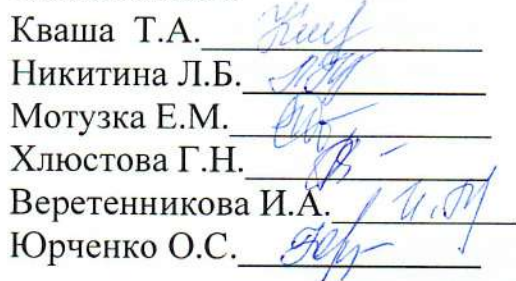 Кваша Т.А.
Никитина Л.Б.
Мотузка Е.М.
Хлюстова Г.Н.
Веретенникова И.А.
Юрченко О.С.